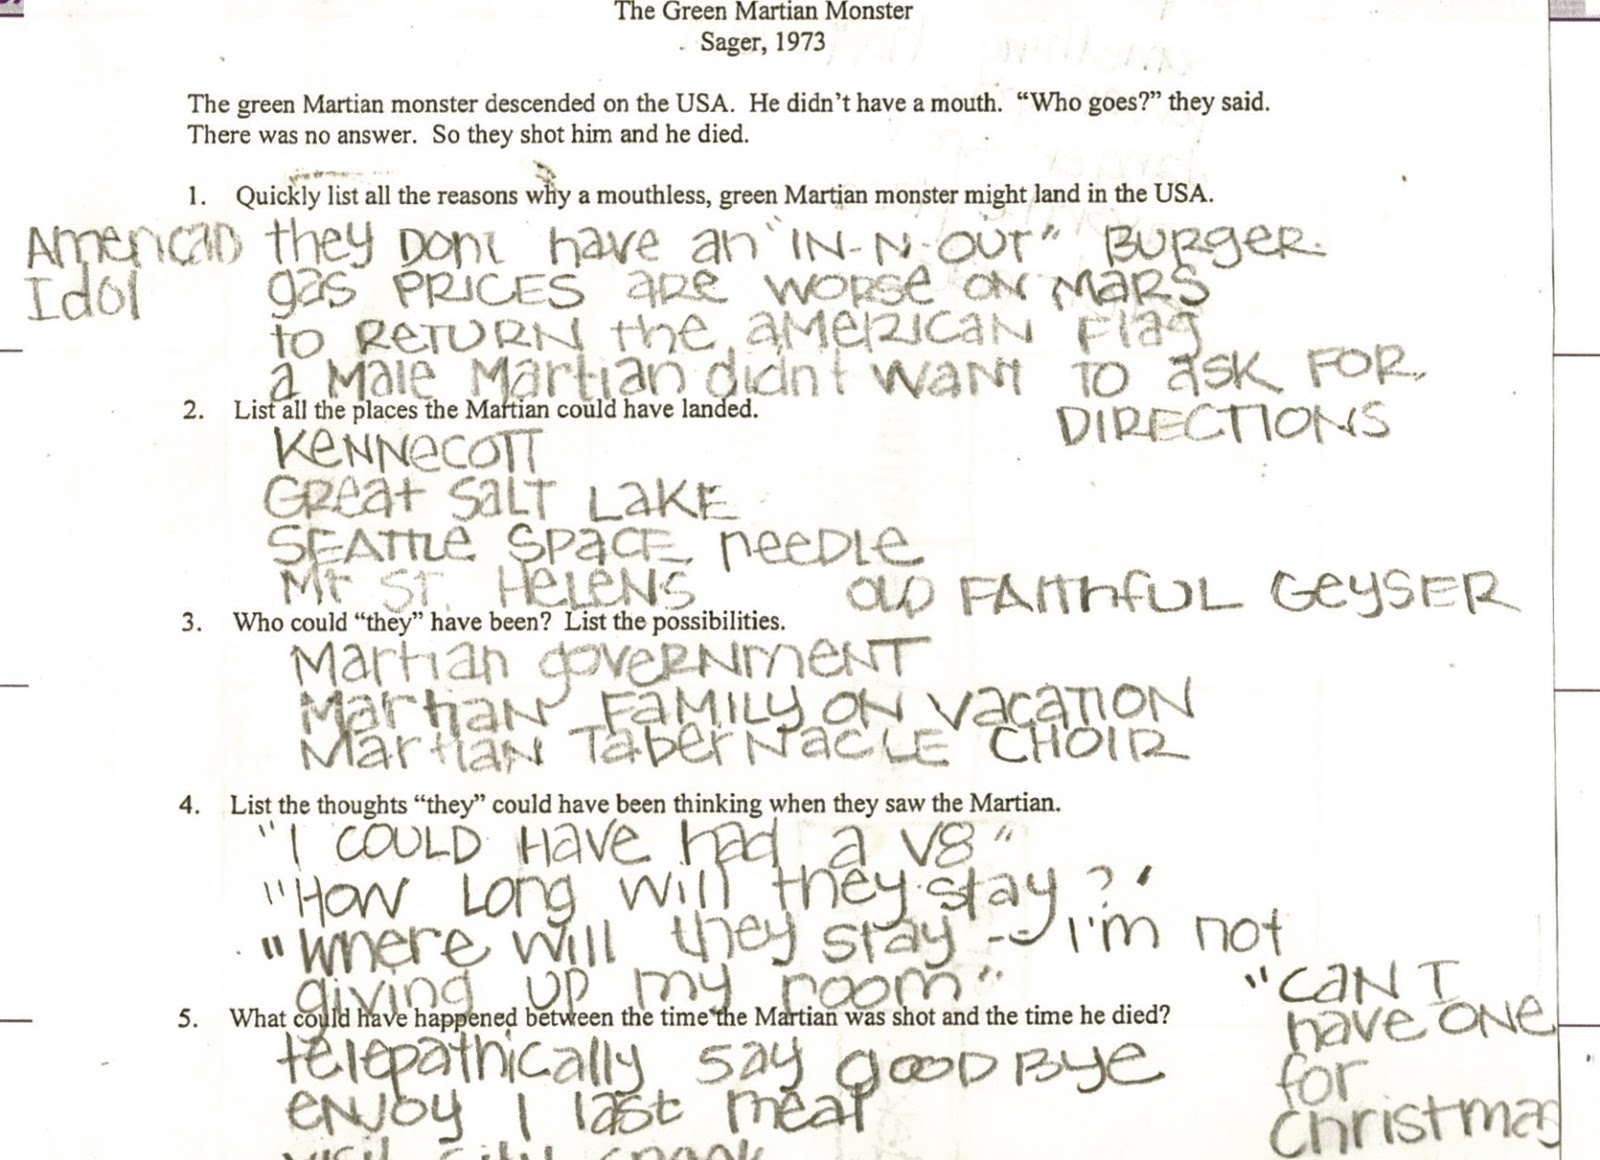 The Green Martian Monster
Sager, 1973
The green Martian monster descended on the USA. He didn't have a mouth. "Who goes?" they said.
There was no answer. So they shot him and he died.
1. Quickly list all the reasons why a mouthless, green Martian monster might land in the USA.
American
Idol
they Dont have an "IN-N-OUT" BURGER.
gas PRICES are worse on Mars
to RETURN the AMERICAN Flag
a Male Martian didn't want to ask FOR
DIRECTIONS
2. List all the places the Martian could have landed.
Kennecott
Great Salt Lake
Seattle Space needle
Mt St. Helens
OLD FAithfUL GeySER
3. Who could "they" have been? List the possibilities.
Martian government
Martian FAMILY ON VACATION
Martian TaberNACLE CHOIR
4. List the thoughts "they" could have been thinking when they saw the Martian.
"I COULD Have had a V8"
"How Long will they stay?"
"where will they stay -- I'm not
giving up my room"
"Can't
have ONE
for
Christmas
5. What could have happened between the time the Martian was shot and the time he died?
telepathically say good Bye
enjoy 1 last meal
visit